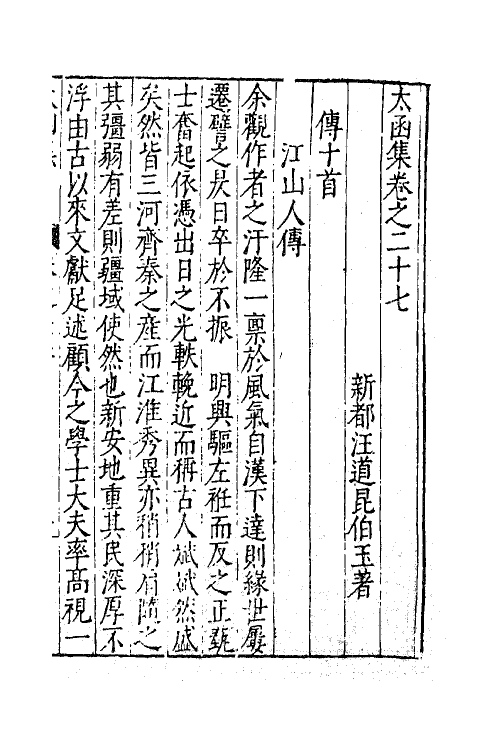 太函集卷之二十七
新都汪道昆伯玉著
傳十首
江山人傳
余觀作者之汙隆一稟於風氣自漢下達則緣世屢
遷譬之昃日卒於不振　明興驅左袵而反之正豪
士奮起依憑出日之光軼輓近而稱古人斌斌然盛
矣然皆三河齊秦之產而江淮秀異亦稍稍肩隨之
其彊弱有差則疆域使然也新安地重其民深厚不
浮由古以來文獻足述顧今之學士大夫率高視一